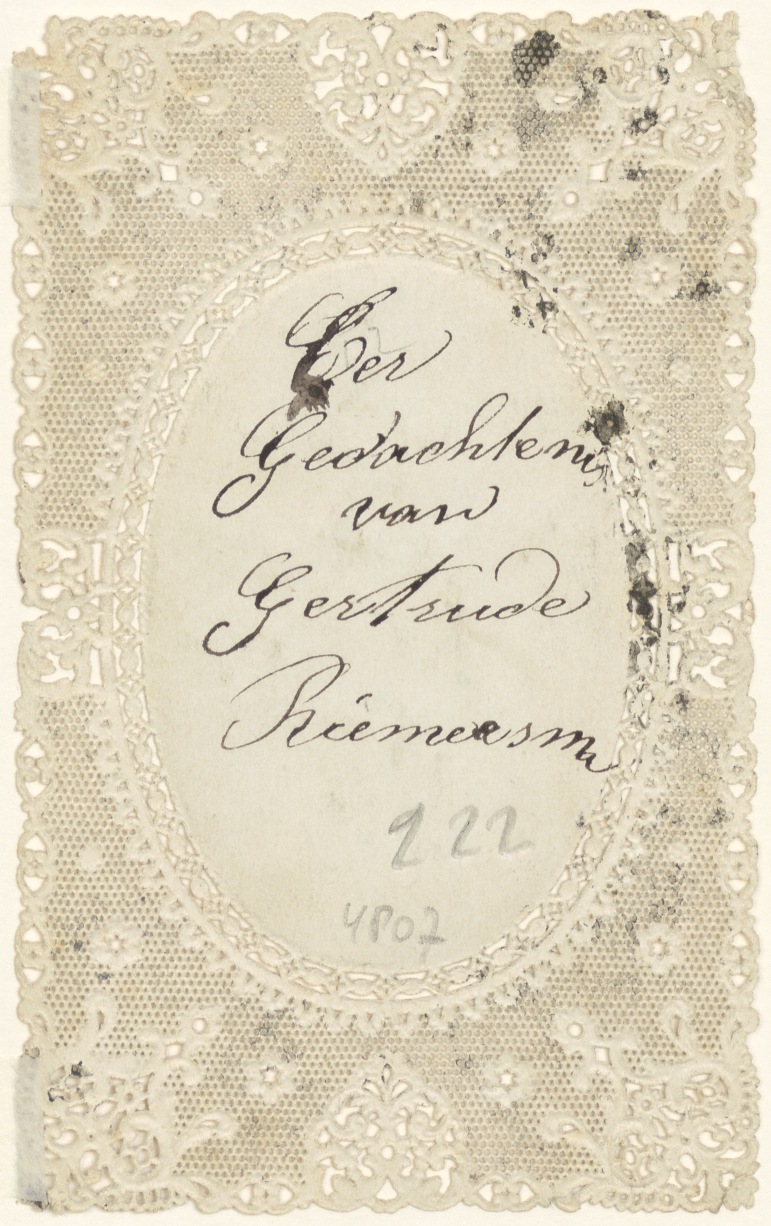 Ter
Gedachtenis
van
Gertrude
Riemersma
222
4807